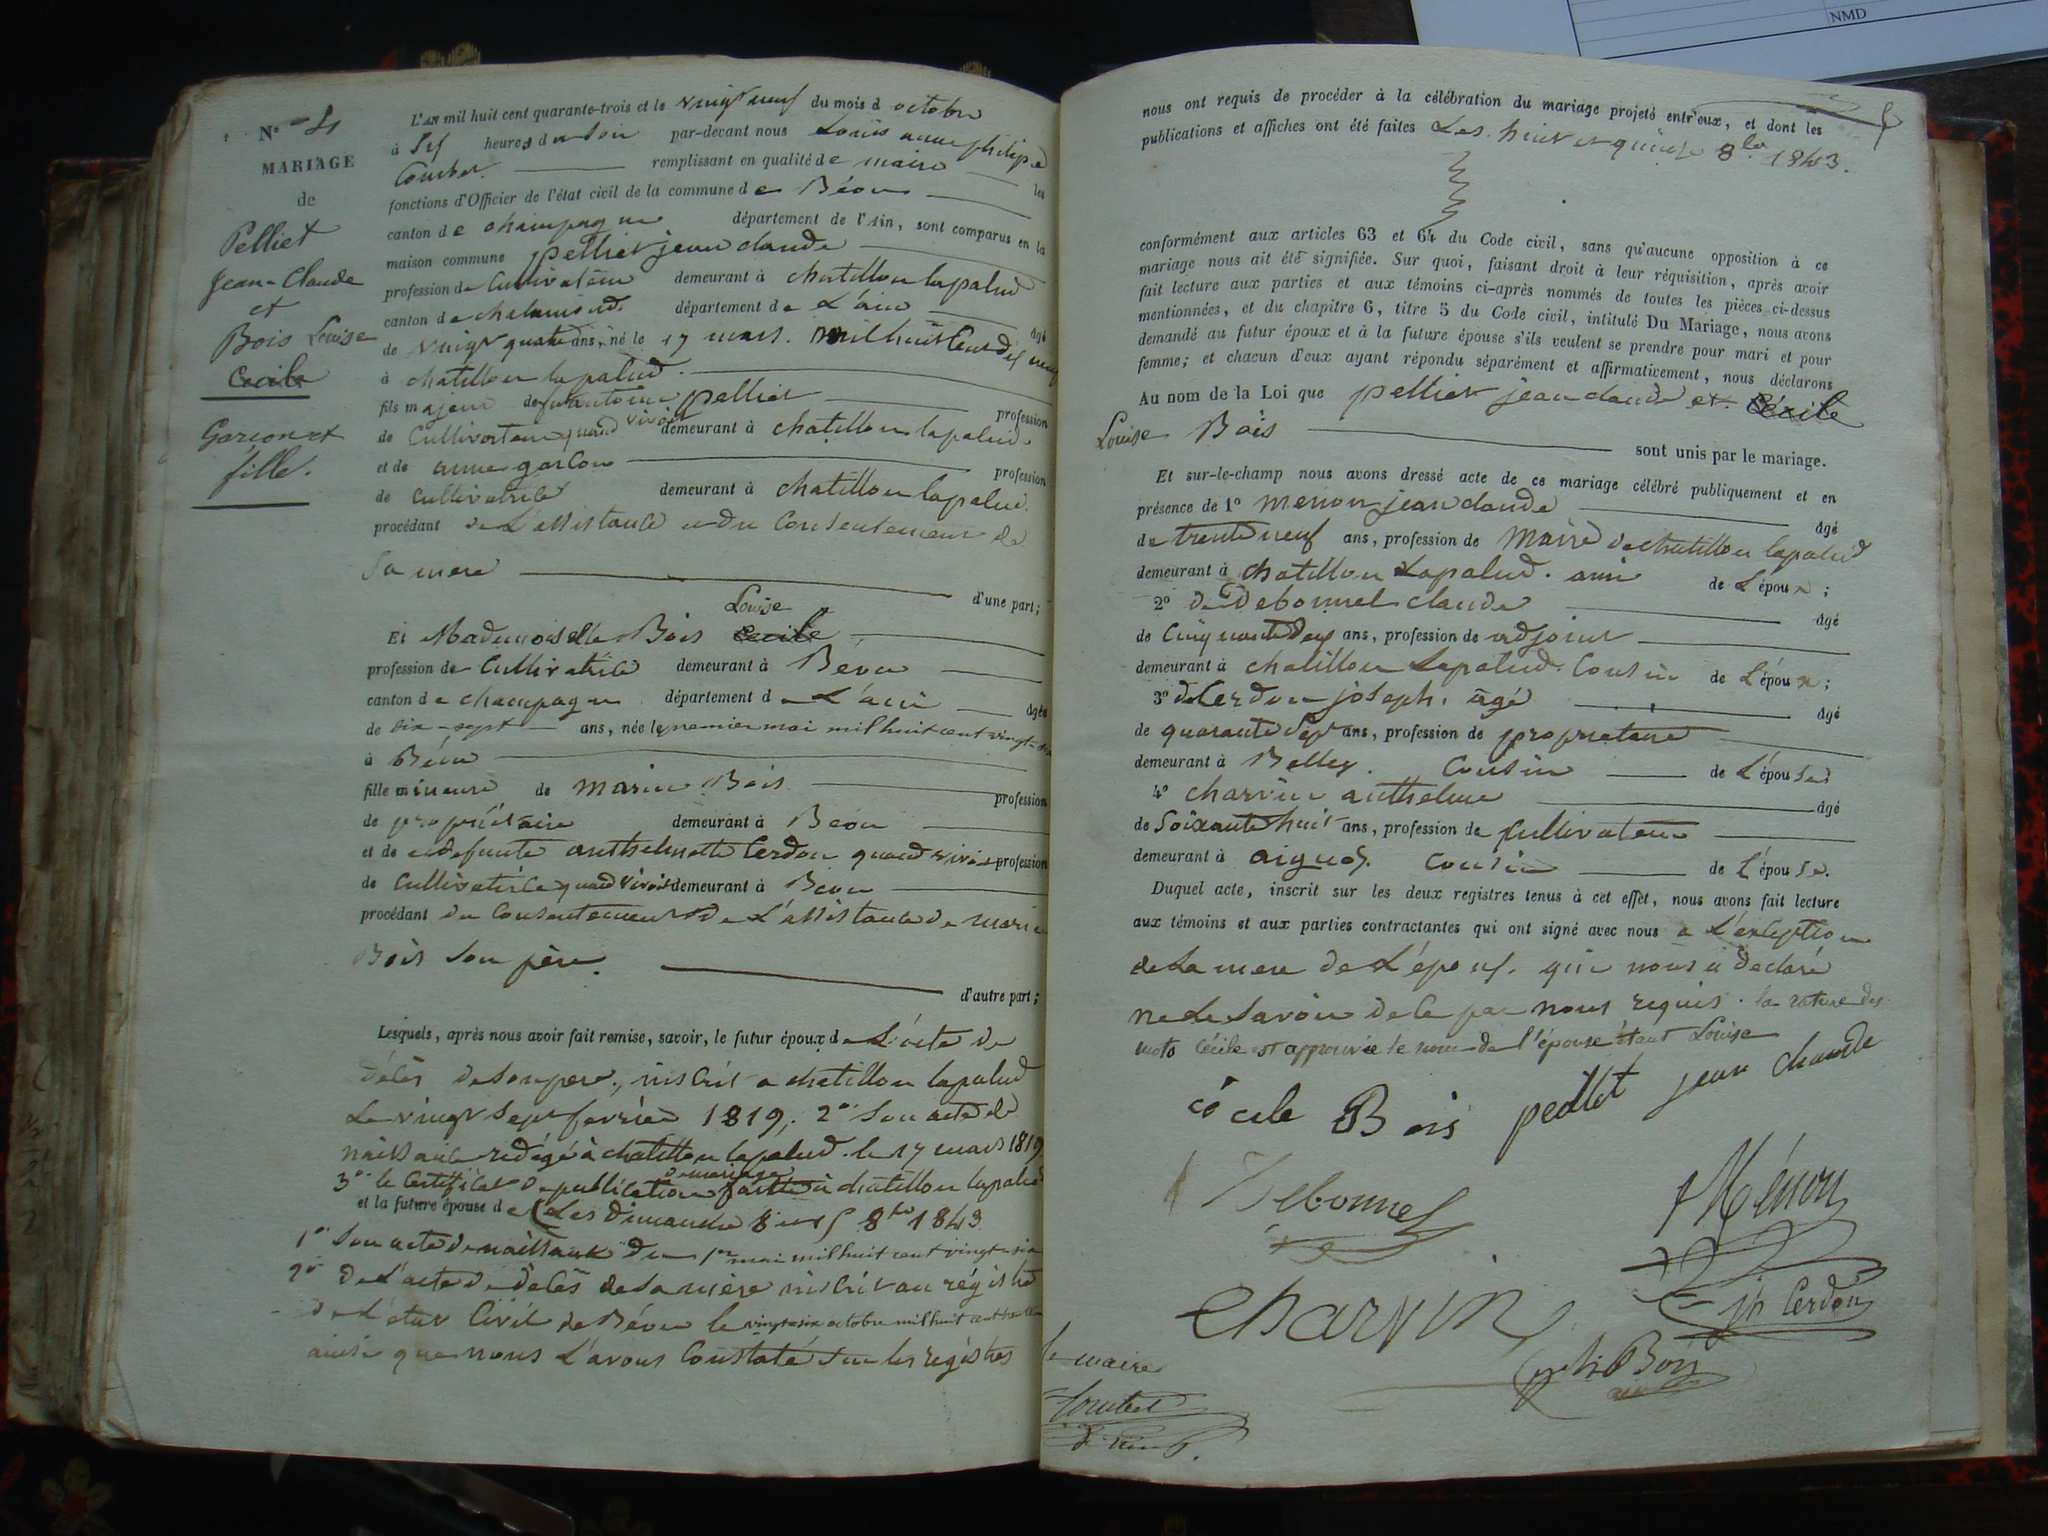 NMD
N° 4
MARIAGE
de
Pelliet
Jean-Claude
et
Bois Louise
Cecile
Garçon et
fille.
L'AN mil huit cent quarante-trois et le vingt neuf du mois d octobre
à Sept heures du Soir par-devant nous Louis anne philipe
remplissant en qualité de maire les
fonctions d'Officier de l'état civil de la commune de Béon
canton de champagne département de l'Ain, sont comparus en la
maison commune pelliet jean claude
profession de Cultivateur demeurant à chatillon lapalud
canton de chalamond. département de L'ain agé
de vingt quatre ans, né le 17 mars. mil huit Cent dix neuf
à chatillon lapalud.
fils majeur de antoine pelliet profession
de Cultivateur quand vivoit demeurant à chatillon lapalud
et de anne garcon profession
de Cultivatrice demeurant à chatillon lapalud.
procédant de L'assistance et du Consentement de
Sa mere d'une part;
Louise
Et Mademoiselle Bois Cecile
profession de Cultivatrice demeurant à Béon
canton de champagne département de L'ain agée
de dix-sept ans, née le premier mai mil huit cent vingt-six
à Béon
fille mineure de Marin Bois profession
de propriétaire demeurant à Béon
et de defunte anthelmette Cerdon quand vivoit profession
de Cultivatrice quand vivoit demeurant à Béon
procédant du Consentement de L'assistance de marin
Bois Son père. d'autre part;
Lesquels, après nous avoir fait remise, savoir, le futur époux de L'acte de
décès de Son pere, inscrit a chatillon lapalud
Le vingt Sept fevrier 1819, 2° Son acte de
naissance redigé à chatillon lapalud le 17 mars 1819
de mariage
3° le Certificat de publication faitte à chatillon lapalud
et la future épouse de Les dimanche 8 et 15 8bre 1843
1° Son acte de naissance du 1er mai mil huit cent vingt-six
2° de L'acte de décès de Sa mère inscrit au régistre
de L'etat Civil de Béon le vingt six octobre mil huit cent
ainsi que nous L'avons Constaté Sur les registres
nous ont requis de procéder à la célébration du mariage projeté entr'eux, et dont les
publications et affiches ont été faites Les huit et quinze 8bre 1843.
conformément aux articles 63 et 64 du Code civil, sans qu'aucune opposition à ce
mariage nous ait été signifiée. Sur quoi, faisant droit à leur réquisition, après avoir
fait lecture aux parties et aux témoins ci-après nommés de toutes les pièces ci-dessus
mentionnées, et du chapitre 6, titre 5 du Code civil, intitulé Du Mariage, nous avons
demandé au futur époux et à la future épouse s'ils veulent se prendre pour mari et pour
femme; et chacun d'eux ayant répondu séparément et affirmativement, nous déclarons
Au nom de la Loi que pelliet jean claude et Cécile
Louise Bois sont unis par le mariage.
Et sur-le-champ nous avons dressé acte de ce mariage célébré publiquement et en
présence de 1° menon jean claude agé
de trente neuf ans, profession de Maire de chatillon lapalud
demeurant à chatillon Lapalud. ami de L'époux;
2° de Debonnel claude agé
de Cinquante deux ans, profession de adjoint
demeurant à chatillon Lapalud. Cousin de L'époux;
3° de Cerdon joseph. agé agé
de quarante Sept ans, profession de propriétaire
demeurant à Belley. Cousin de L'épouse
4° charvin anthelme agé
de Soixante huit ans, profession de Cultivateur
demeurant à Cousin de L'épouse.
Duquel acte, inscrit sur les deux registres tenus à cet effet, nous avons fait lecture
aux témoins et aux parties contractantes qui ont signé avec nous a L'exception
de La mere de L'époux. qui nous a declaré
ne Le Savoir de ce par nous requis. la rature des
mots Cécile est approuvée le nom de l'épouse étant Louise
cécile Bois pelliet jean claude
Debonnel Ménon
Charvin jh Cerdon
Bois
le maire